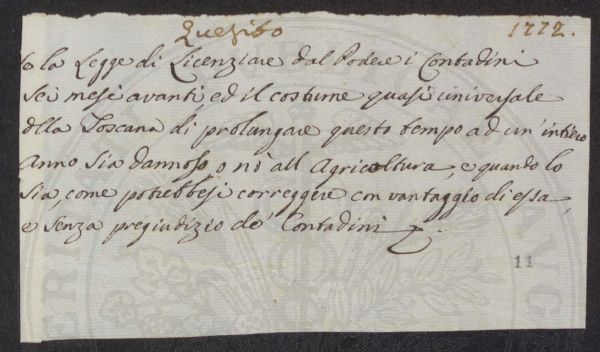 Quesito 1772.
la Legge di Licenziare dal Podere i Contadini
sei mesi avanti, ed il costume quasi universale
della Toscana di prolungare questo tempo ad un' intiero
Anno. Sia dannoso, o nò all Agricoltura, e quando lo
sia, come potrebbesi correggere con vantaggio di essa,
e senza pregiudizio de Contadini
11